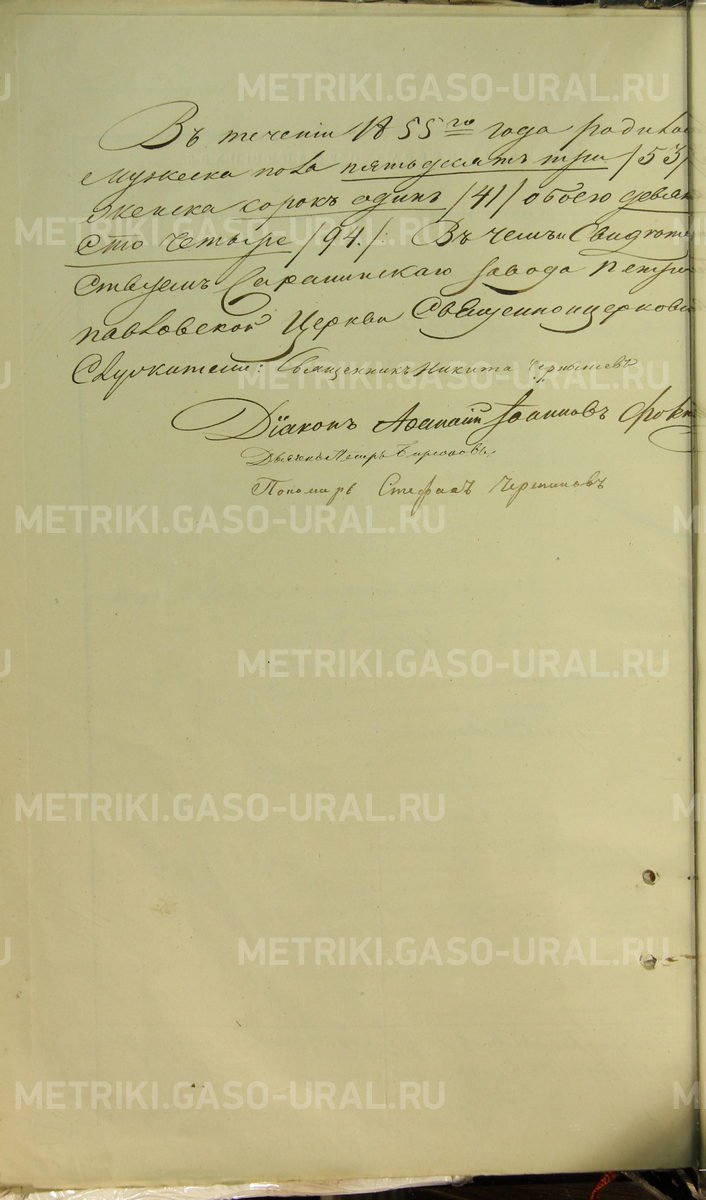 Въ теченіи 1855го года родилос
Мужеска пола пятьдесятъ три /53/
Женска сорокъ одинъ /41/ обоего девян
сто четыре /94./: Въ чемъ и Свидѣте
ствуемъ Саранинскаго завода Петро
павловской Церкви Священноцерковно
Служители: Священникъ Никита
Діаконъ Афанасій Іоанновъ
Дьячекъ Петръ
Пономарь Стефанъ Черепановъ
METRIKI.GASO-URAL.RU
METRIKI.GASO-URAL.RU
METRIKI.GASO-URAL.RU
METRIKI.GASO-URAL.RU
METRIKI.GASO-URAL.RU
METRIKI.GASO-URAL.RU
METRIKI.GASO-URAL.RU
METRIKI.GASO-URAL.RU